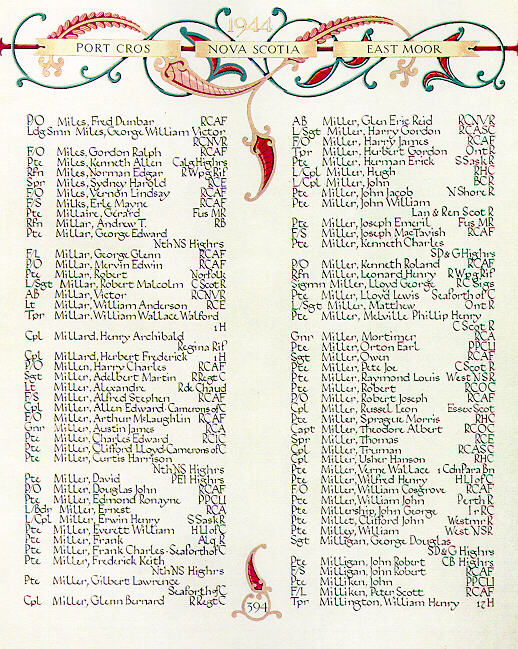 1944
PORT CROS NOVA SCOTIA EAST MOOR
P/O Miles, Fred Dunbar RCAF
Ldg Smn Miles, George William Victor
RCNVR
F/O Miles, Gordon Ralph RCAF
Pte Miles, Kenneth Allen Calg Highrs
Rfn Miles, Norman Edgar R Wpg Rif
Spr Miles, Sydney Harold RCE
F/O Miles, Vernon Lindsay RCAF
F/S Milks, Erle Mayne RCAF
Pte Millaire, Gérard Fus MR
Rfn Millar, Andrew T. RB
Pte Millar, George Edward
Nth NS Highrs
F/L Millar, George Glenn RCAF
P/O Millar, Mervin Edwin RCAF
Pte Millar, Robert Norfolk
L/Sgt Millar, Robert Malcolm C Scot R
AB Millar, Victor RCNVR
Lt Millar, William Anderson RCE
Tpr Millar, William Wallace Walford
1 H
Cpl Millard, Henry Archibald
Regina Rif
Cpl Millard, Herbert Frederick 1 H
P/O Miller, Harry Charles RCAF
Sgt Miller, Adelbert Martin R Regt C
Lt Miller, Alexandre R de Chaud
F/S Miller, Alfred Stephen RCAF
Cpl Miller, Allen Edward Camerons of C
F/O Miller, Arthur McLaughlin RCAF
Gnr Miller, Austin James RCA
Pte Miller, Charles Edward RCIC
Pte Miller, Clifford Lloyd Camerons of C
Pte Miller, Curtis Harrison
Nth NS Highrs
Pte Miller, David PEI Highrs
P/O Miller, Douglas John RCAF
Pte Miller, Edmond Ronayne PPCLI
L/Bdr Miller, Ernest RCA
L/Cpl Miller, Erwin Henry S Sask R
Pte Miller, Everett William HLI of C
Pte Miller, Frank Alq R
Pte Miller, Frank Charles Seaforth of C
Pte Miller, Frederick Keith
Nth NS Highrs
Pte Miller, Gilbert Lawrence
Seaforth of C
Cpl Miller, Glenn Bernard R Regt C
AB Miller, Glen Eric Reid RCNVR
L/Sgt Miller, Harry Gordon RCASC
F/O Miller, Harry James RCAF
Tpr Miller, Herbert Gordon Ont R
Pte Miller, Herman Erick S Sask R
L/Cpl Miller, Hugh RHC
L/Cpl Miller, John BCR
Pte Miller, John Jacob N Shore R
Pte Miller, John William
Lan & Ren Scot R
Pte Miller, Joseph Emeril Fus MR
F/S Miller, Joseph MacTavish RCAF
Pte Miller, Kenneth Charles
SD & G Highrs
P/O Miller, Kenneth Roland RCAF
Rfn Miller, Leonard Henry R Wpg Rif
Sigmn Miller, Lloyd George RC Sigs
Pte Miller, Lloyd Lewis Seaforth of C
L/Sgt Miller, Matthew Ont R
Pte Miller, Melville Phillip Henry
C Scot R
Gnr Miller, Mortimer RCA
Pte Miller, Orton Earl PPCLI
Sgt Miller, Owen RCAF
Pte Miller, Pete Joe C Scot R
Pte Miller, Raymond Louis West NSR
Pte Miller, Robert RCOC
P/O Miller, Robert Joseph RCAF
Cpl Miller, Russel Leon Essex Scot
Pte Miller, Sprague Morris RHC
Capt Miller, Theodore Albert RCOC
Spr Miller, Thomas RCE
Cpl Miller, Truman RCASC
Cpl Miller, Usher Hanson RHC
Pte Miller, Verne Wallace 1 Cdn Para Bn
Pte Miller, Wilfred Henry HLI of C
F/O Miller, William Cosgrove RCAF
Pte Miller, William John Perth R
Pte Millership, John George Ir RC
Pte Millett, Clifford John Westmr R
Pte Milley, William West NSR
Sgt Milligan, George Douglas
SD & G Highrs
Pte Milligan, John Robert CB Highrs
F/S Milligan, John Robert RCAF
Pte Milliken, John PPCLI
F/L Milliken, Peter Scott RCAF
Tpr Millington, William Henry 12 H
394